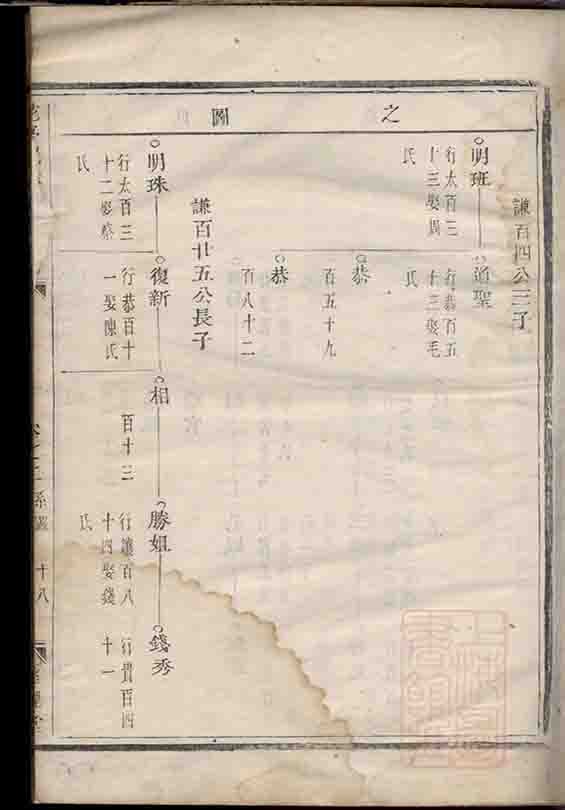 之圖
謙百四公三子
明班
行太百三
十三娶周
氏
道聖
行恭百五
十三娶毛
氏
恭
百五十九
恭
百八十二
謙百廿五公長子
明珠
行太百三
十二娶蔡
氏
復新
行恭百十
一娶陳氏
相
百十三
勝姐
行讓百八
十四娶錢
氏
錢秀
行貴百四
十一
系圖
十八